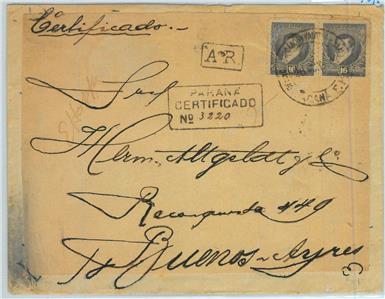 Certificado.—
A.R.
16 16
PARANÁ
CERTIFICADO
Nº 3220
Herm. Altgelt y Co
Reconquista 449
Buenos-Ayres